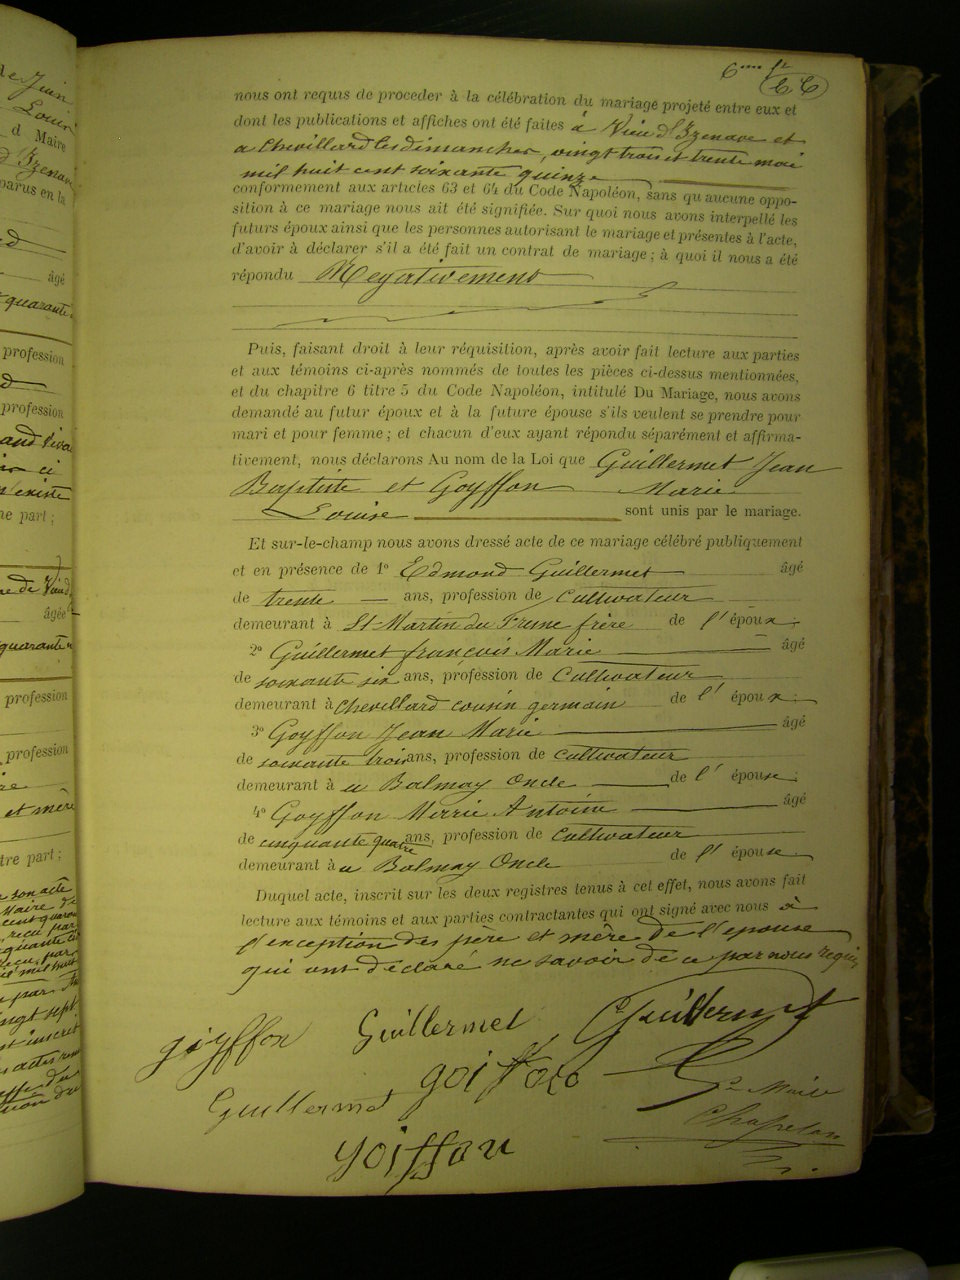 6
nous ont requis de proceder à la célébration du mariage projeté entre eux et
dont les publications et affiches ont été faites à Vieu d'Izenave et
a Chevillard les dimanches, vingt trois et trente mai
mil huit cent soixante quinze
conformement aux articles 63 et 64 du Code Napoléon, sans qu'aucune oppo-
sition à ce mariage nous ait été signifiée. Sur quoi nous avons interpellé les
futurs époux ainsi que les personnes autorisant le mariage et présentes à l'acte,
d'avoir à déclarer s'il a été fait un contrat de mariage ; à quoi il nous a été
répondu Negativement
Puis, faisant droit à leur réquisition, après avoir fait lecture aux parties
et aux témoins ci-après nommés de toutes les pièces ci-dessus mentionnées,
et du chapitre 6 titre 5 du Code Napoléon, intitulé Du Mariage, nous avons
demandé au futur époux et à la future épouse s'ils veulent se prendre pour
mari et pour femme ; et chacun d'eux ayant répondu séparément et affirma-
tivement, nous déclarons Au nom de la Loi que Guillermet Jean
Baptiste et Goyffon Marie
Louise sont unis par le mariage.
Et sur-le-champ nous avons dressé acte de ce mariage célébré publiquement
et en présence de 1º Edmond Guillermet âgé
de trente ans, profession de Cultivateur
demeurant à St Martin du Frene frère de l' époux
2º Guillermet françois Marie âgé
de soixante six ans, profession de Cultivateur
demeurant à Chevillard cousin germain de l' époux
3º Goyffon Jean Marie âgé
de soixante trois ans, profession de Cultivateur
demeurant à a Balmay Oncle de l' épouse
4º Goyffon Marie Antoine âgé
de cinquante quatre ans, profession de Cultivateur
demeurant à a Balmay Oncle de l' épouse
Duquel acte, inscrit sur les deux registres tenus à cet effet, nous avons fait
lecture aux témoins et aux parties contractantes qui ont signé avec nous à
l'exception des père et mère de l'epouse
qui ont déclaré ne savoir de ce par nous requis
goyffon Guillermet Guillermet
goiffon
Le Maire
Guillermet Chapelan
goiffon